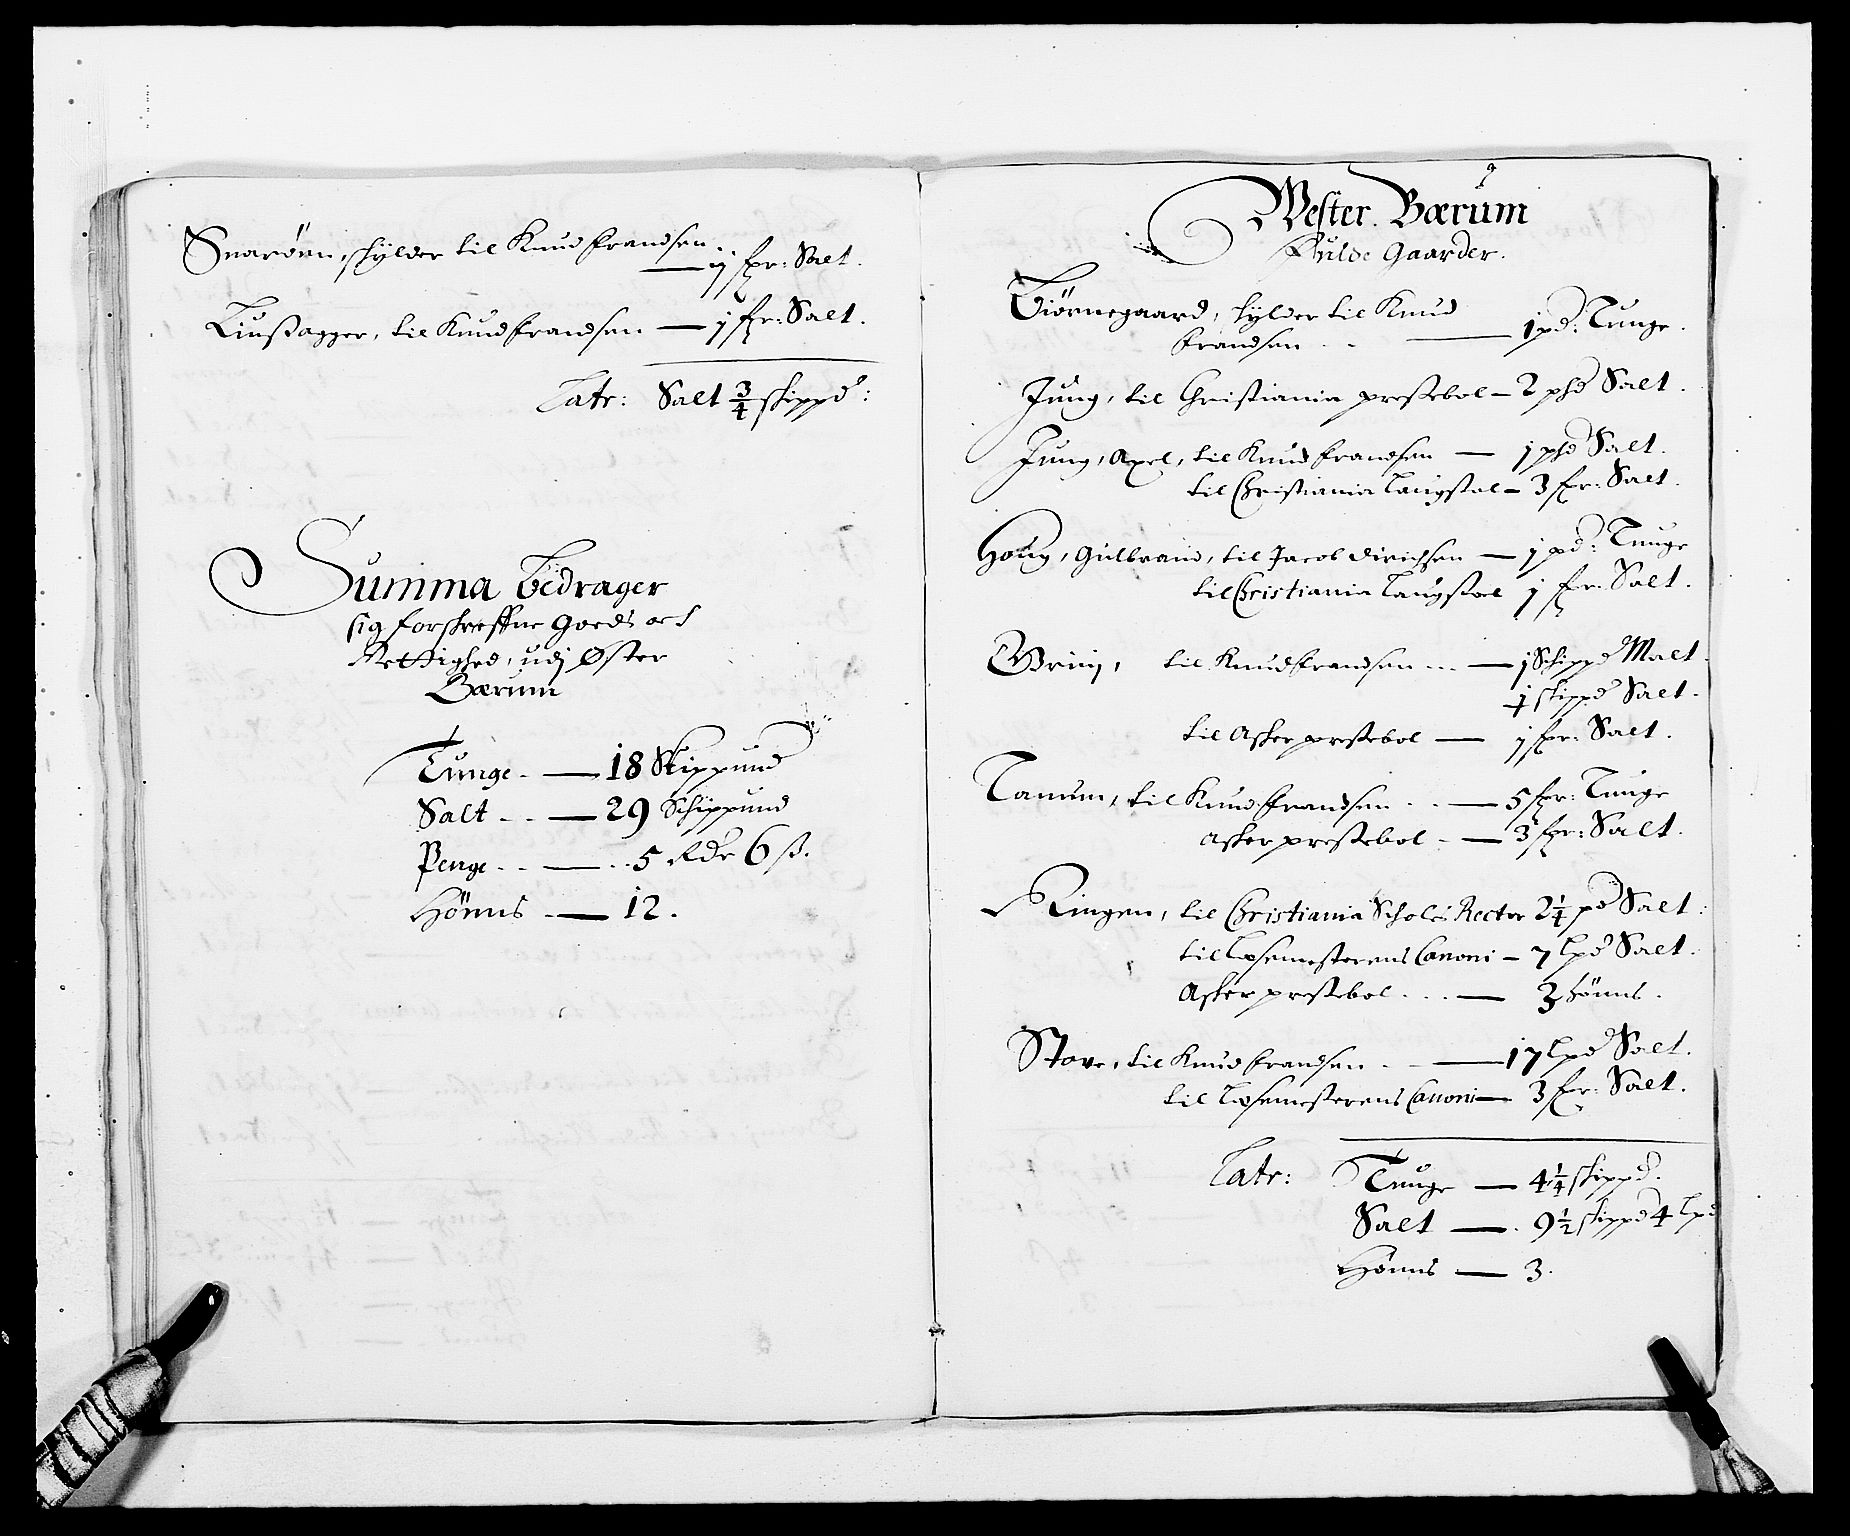 Snarøen, skylder til Knud frandsen
— ij fzr: Salt.
Liußagger, til Knud frandsen — j fzr: Salt.
Latr: Salt 3/4 skippd:
Summa bedrager
sig forskreffne Goeds och
Rettighed, udj Øster
Bærum
Tunge - — 18 Skippund
Salt - - — 29 Schippund
Penge - - — - - 5 Rdr 6 ß.
Hönns - — 12.
Wester Bærum
Fulde Gaarder.
Biörnegaard, skylder til Knud
frandsen - - — 1 pd: Tunge.
Jung, til Christiania prestebol — 2 phd Salt.
Jung, Axel, til Knud frandsen — j phd Salt.
til Christiania Laugstol — 3 fzr: Salt.
Houg, Gulbrand, til Jacob Dirichsen — j pd: Tunge
til Christiania Laugstoel j fzr: Salt.
til Knud frandsen - - — j Schippd Malt.
1 skippd Salt.
til Asker prestebol — j fzr: Salt.
Tanum, til Knud frandsen - - — 5 fzr: Tunge
Asker prestebol - — 3 fzr: Salt.
Ringen, til Christiania Scholes Rector 2 1/4 pd Salt:
til Læsemesterens Canoni — 7 lpd Salt.
Asker prestebol - - - — 3 hönns.
Stove, til Knud frandsen - — 17 lpd Salt.
til Læsemesterens Canoni — 3 fzr: Salt.
Latr: Tunge — 4 1/4 skippd.
Salt — 9 1/2 skippd 4 lpd
Hönns — 3.